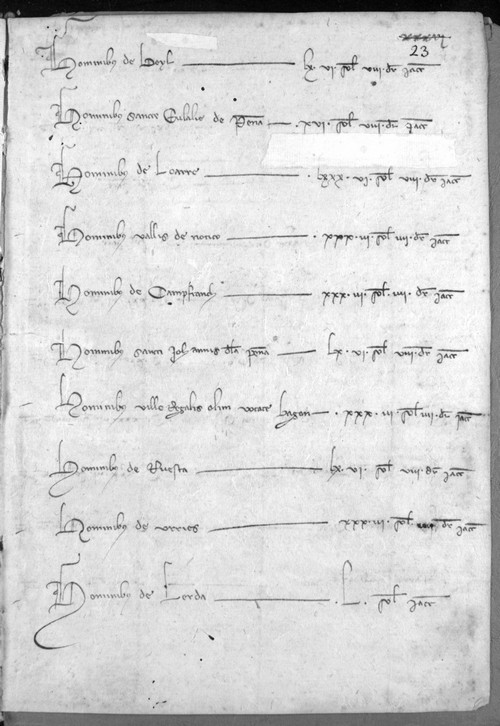 23
Hominibus de Boyl lx vi sol viii dr iacc
Hominibus sancte Eulalie de Pena xvi sol viii dr iacc
Hominibus de Loarre lxxx vi sol viii dr iacc
Hominibus vallis de xxx iii sol iiii dr iacc
Hominibus de Campfranch xxx iii sol iiii dr iacc
Hominibus sancti Johannis dela pena lx vi sol viii dr iacc
Hominibus ville Regalis olim vocate xxx iii sol iiii dr iacc
Hominibus de Ruesta lx vi sol viii dr iacc
Hominibus de urries xxx iii sol dr iacc
Hominibus de Lerda L sol iacc